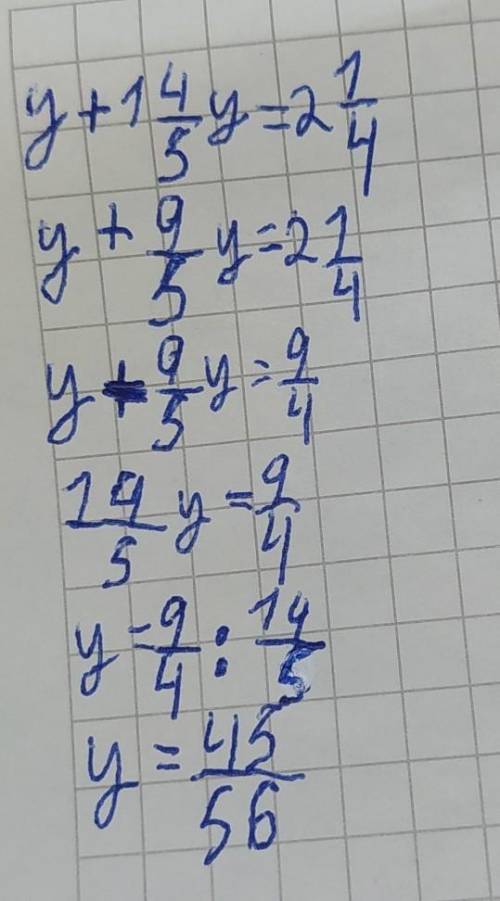 y + 1 4/5 y = 2 1/4
y + 9/5 y = 2 1/4
y + 9/5 y = 9/4
14/5 y = 9/4
y = 9/4 : 14/5
y = 45/56